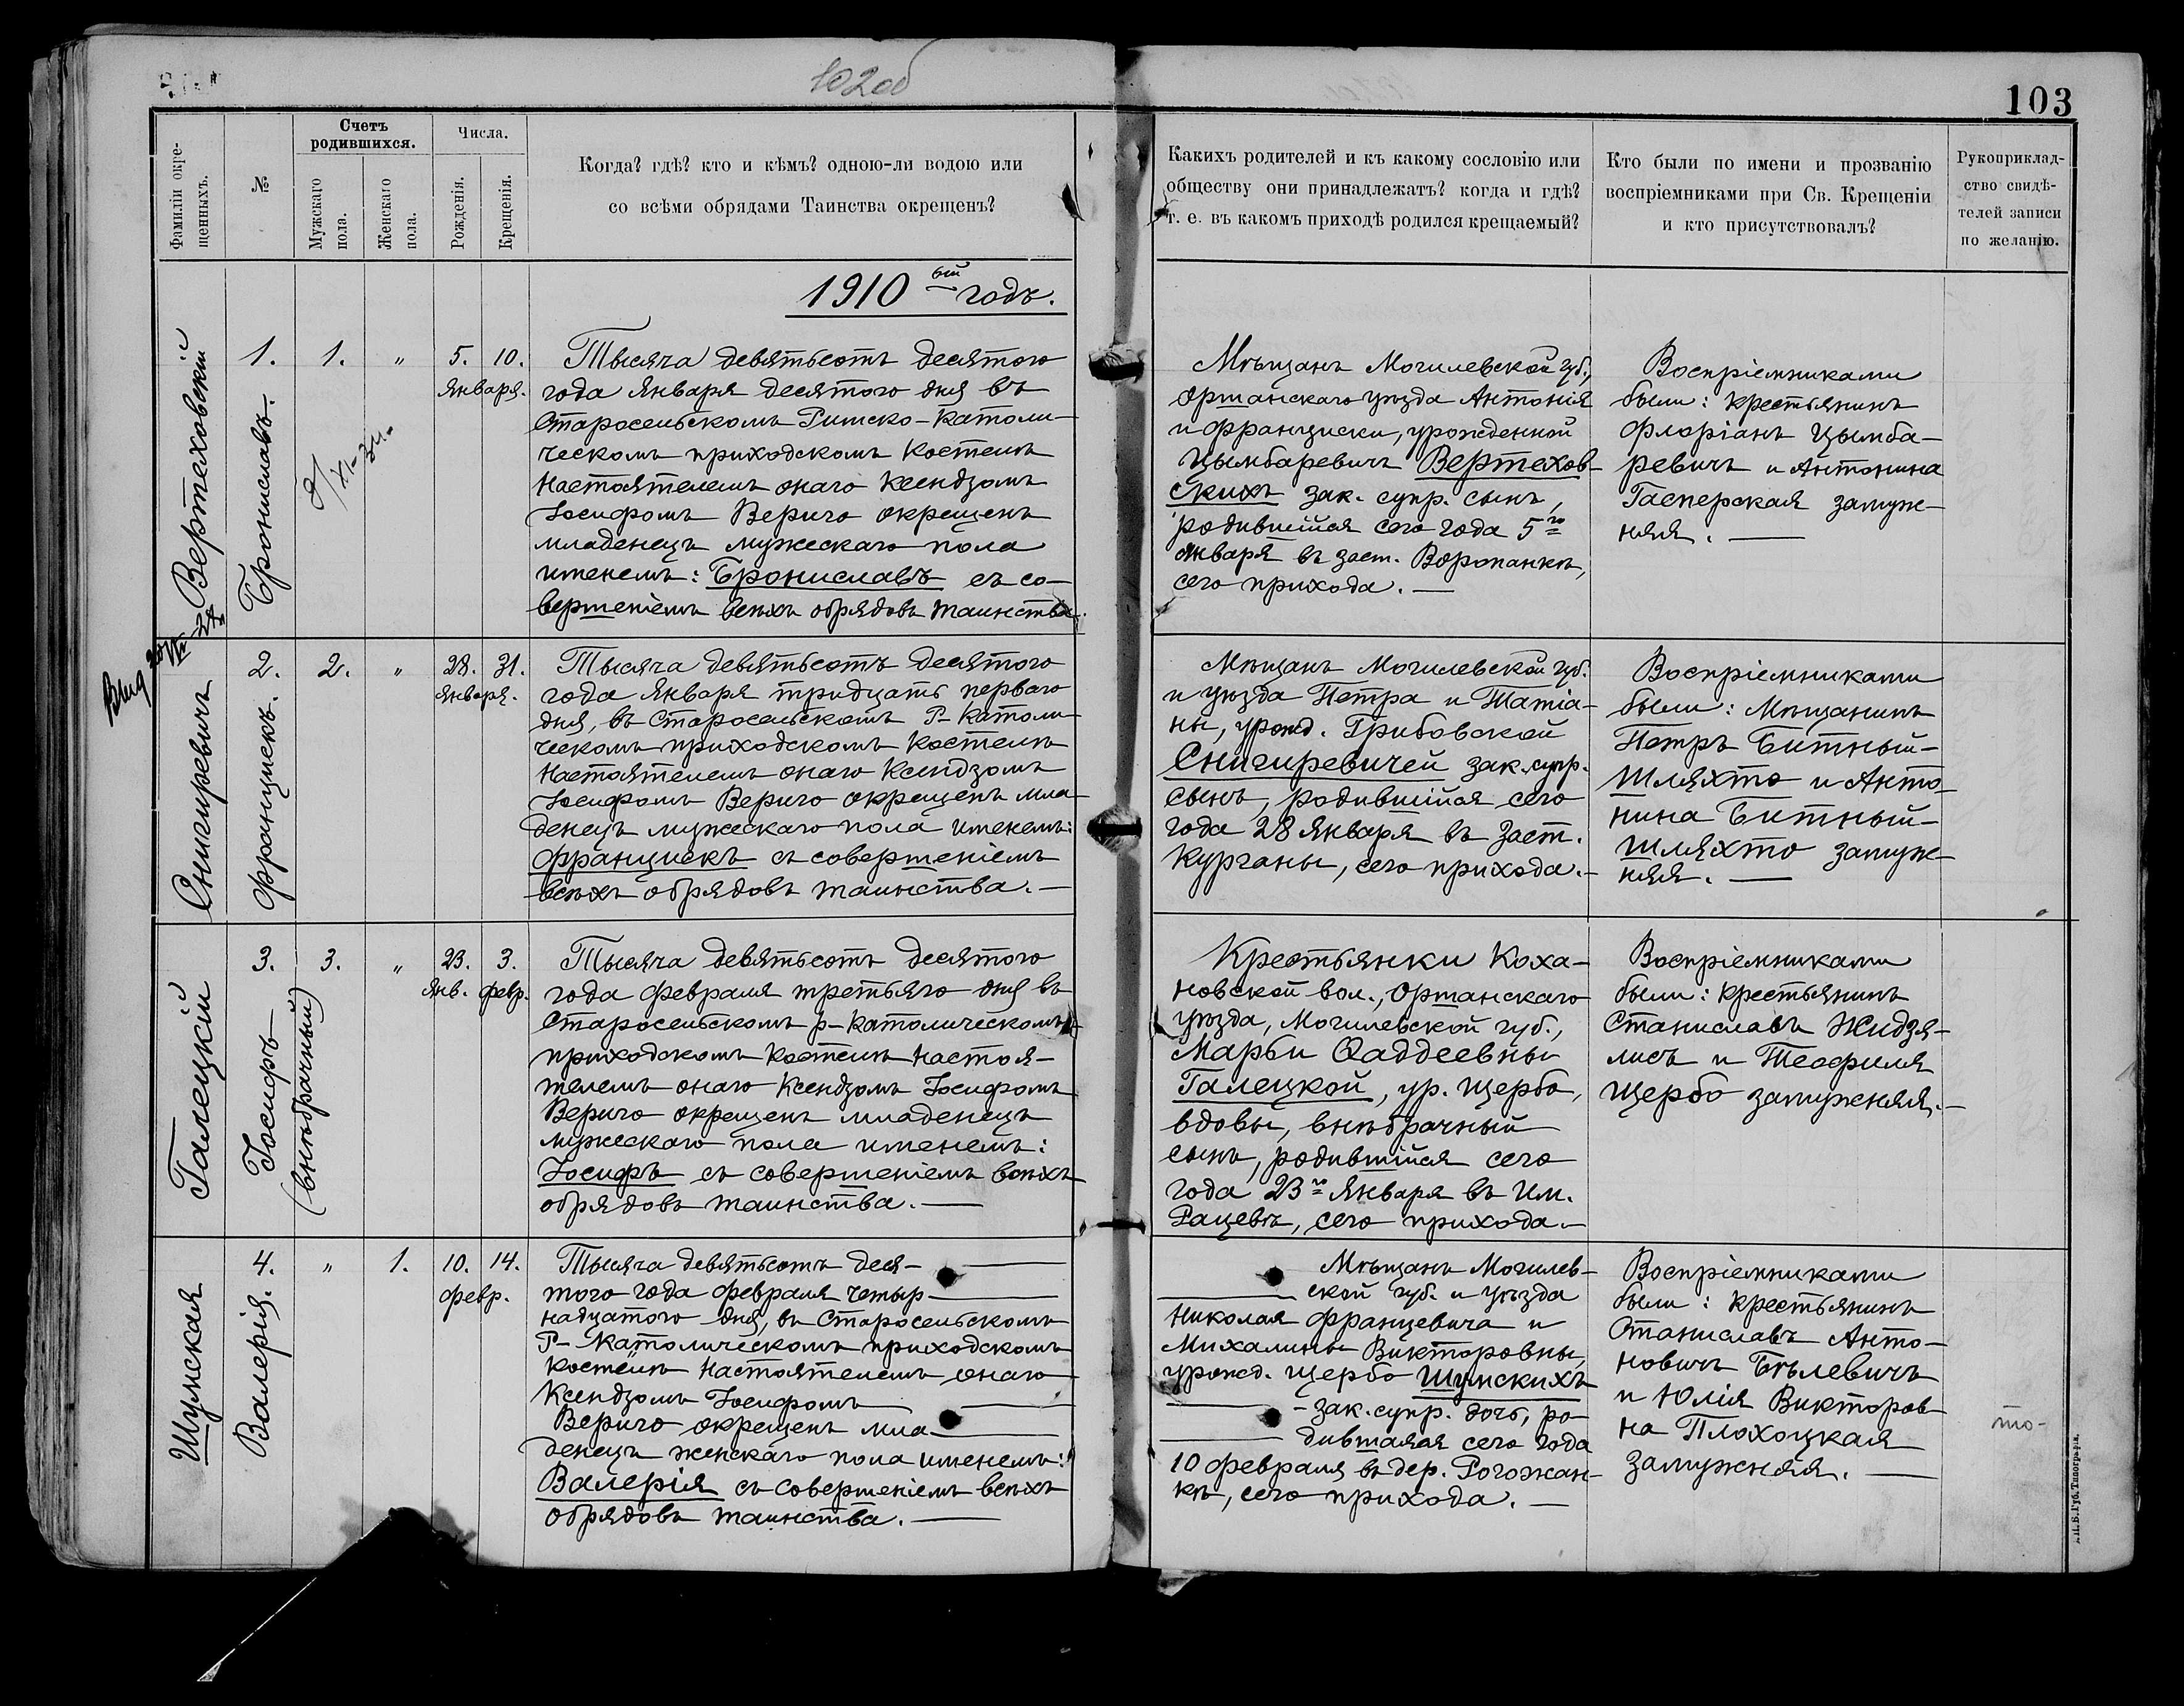 102об
103
Фамиліи окре-
щенныхъ.
№
Счетъ
родившихся.
Мужскаго
пола.
Женскаго
пола.
Числа.
Рожденія.
Крещенія.
Когда? гдѣ? кто и кѣмъ? одною-ли водою или
со всѣми обрядами Таинства окрещенъ?
Какихъ родителей и къ какому сословію или
обществу они принадлежатъ? когда и гдѣ?
т. е. въ какомъ приходѣ родился крещаемый?
Кто были по имени и прозванію
воспріемниками при Св. Крещеніи
и кто присутствовалъ?
Рукоприклад-
ство свидѣ-
телей записи
по желанію.
1910 ый годъ.
Вертеховскій
1.
Брониславъ.
1.
"
5. 10.
Января.
Тысяча девятьсотъ десятого
года Января десятого дня въ
Старосельскомъ Римско-Католи-
ческомъ приходскомъ костелѣ
Настоятелемъ онаго Ксендзомъ
Іосифомъ Вериго окрещенъ
младенецъ мужескаго пола
именемъ: Брониславъ съ со-
вершеніемъ всѣхъ обрядовъ таинства.
Мѣщанъ Могилевской губ.,
Оршанскаго уѣзда Антонія
и Франциски, урожденной
Цымбаревичъ Вертехов-
скихъ зак. супр. сынъ,
родившійся сего года 5го
Января въ заст. Воропанкѣ,
сего прихода. —
Воспріемниками
были: крестьянинъ
Флоріанъ Цымба-
ревичъ и Антонина
Гасперская замуж-
няя. —
Выд
Снигиревичъ
2.
Францискъ.
2.
"
28. 31.
Января.
Тысяча девятьсотъ десятого
года Января тридцать перваго
дня, въ Старосельскомъ Р-Католи-
ческомъ приходскомъ костелѣ
Настоятелемъ онаго Ксендзомъ
Іосифомъ Вериго окрещенъ мла-
денецъ мужескаго пола именемъ:
Францискъ съ совершеніемъ
всѣхъ обрядовъ таинства. —
Мѣщанъ Могилевской губ.
и уѣзда Петра и Татіа-
ны, урожд. Грибовской
Снигиревичей зак. супр.
сынъ, родившійся сего
года 28 Января въ заст.
Курганы, сего прихода. —
Воспріемниками
были: Мѣщанинъ
Петръ Битный-
Шляхто и Анто-
нина Битный-
Шляхто замуж-
няя. —
Галецкій
3.
Іосифъ
(внѣбрачный)
3.
"
23. 3.
Янв. февр.
Тысяча девятьсотъ десятого
года февраля третьяго дня въ
Старосельскомъ р-католическомъ
приходскомъ костелѣ Настоя-
телемъ онаго Ксендзомъ Іосифомъ
Вериго окрещенъ младенецъ
мужескаго пола именемъ:
Іосифъ съ совершеніемъ всѣхъ
обрядовъ таинства. —
Крестьянки Коха-
новской вол., Оршанскаго
уѣзда, Могилевской губ.,
Марьи Ѳаддеевны
Галецкой, ур. Щербо,
вдовы, внѣбрачный
сынъ, родившійся сего
года 23го Января въ им.
Рацевѣ, сего прихода. —
Воспріемниками
были: крестьянинъ
Станиславъ Жидзя-
лисъ и Теофиля
Щербо замужняя. —
Шумская
4.
Валерія.
"
1.
10. 14.
февр.
Тысяча девятьсотъ деся-
того года февраля четыр-
надцатого дня, въ Старосельскомъ
Р-Католическомъ приходскомъ
костелѣ Настоятелемъ онаго
Ксендзомъ Іосифомъ
Вериго окрещенъ мла-
денецъ женскаго пола именемъ:
Валерія съ совершеніемъ всѣхъ
обрядовъ таинства. —
Мѣщанъ Могилев-
ской губ. и уѣзда
Николая Францевича и
Михалины Викторовны,
урожд. Щербо Шумскихъ
- зак. супр. дочь, ро-
дившаяся сего года
10 февраля въ дер. Рогожан-
кѣ, сего прихода. —
Воспріемниками
были: крестьянинъ
Станиславъ Анто-
новичъ Бѣлевичъ
и Юлія Викторов-
на Плохоцкая
замужняя. —
то-